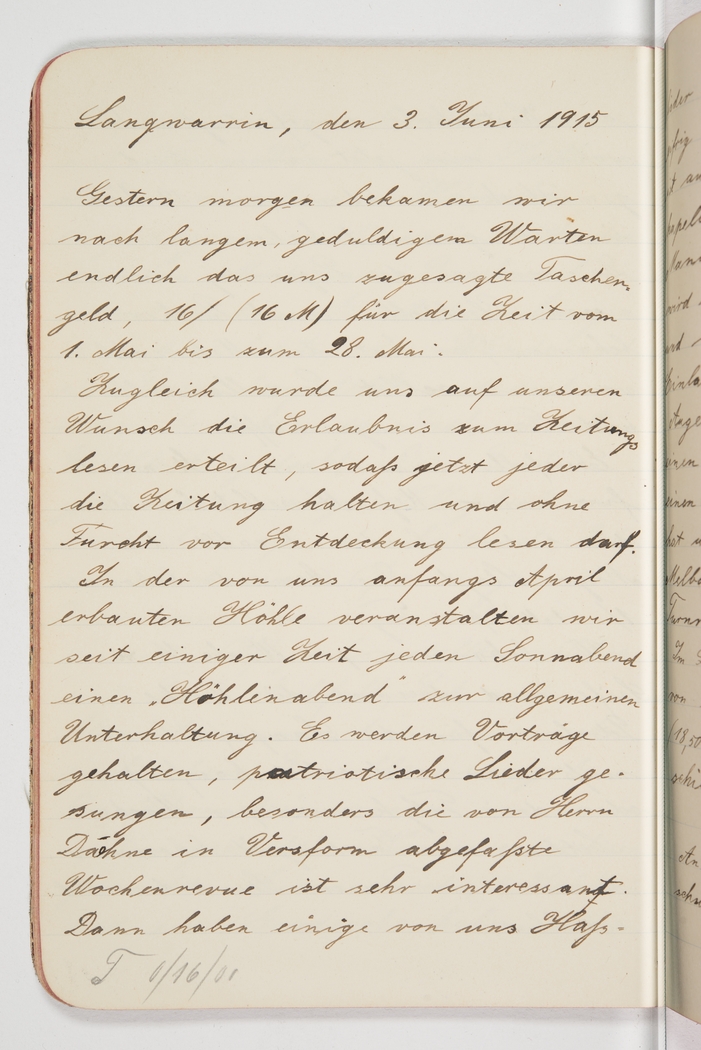 Langwarrin, den 3. Juni 1915
Gestern morgen bekamen wir
nach langem, geduldigem Warten
endlich das uns zugesagte Taschen-
geld, 16/ (16 M) für die Zeit vom
1. Mai bis zum 28. Mai.
Zugleich wurde uns auf unseren
Wunsch die Erlaubnis zum Zeitungs
lesen erteilt, sodaß jetzt jeder
die Zeitung halten und ohne
Furcht vor Entdeckung lesen darf.
In der von uns anfangs April
erbauten Höhle veranstalten wir
seit einiger Zeit jeden Sonnabend
einen „Höhlenabend" zur allgemeinen
Unterhaltung. Es werden Vorträge
gehalten, patriotische Lieder ge-
sungen, besonders die von Herrn
Dähne in Versform abgefaßte
Wochenrevue ist sehr interessant.
Dann haben einige von uns Haß-